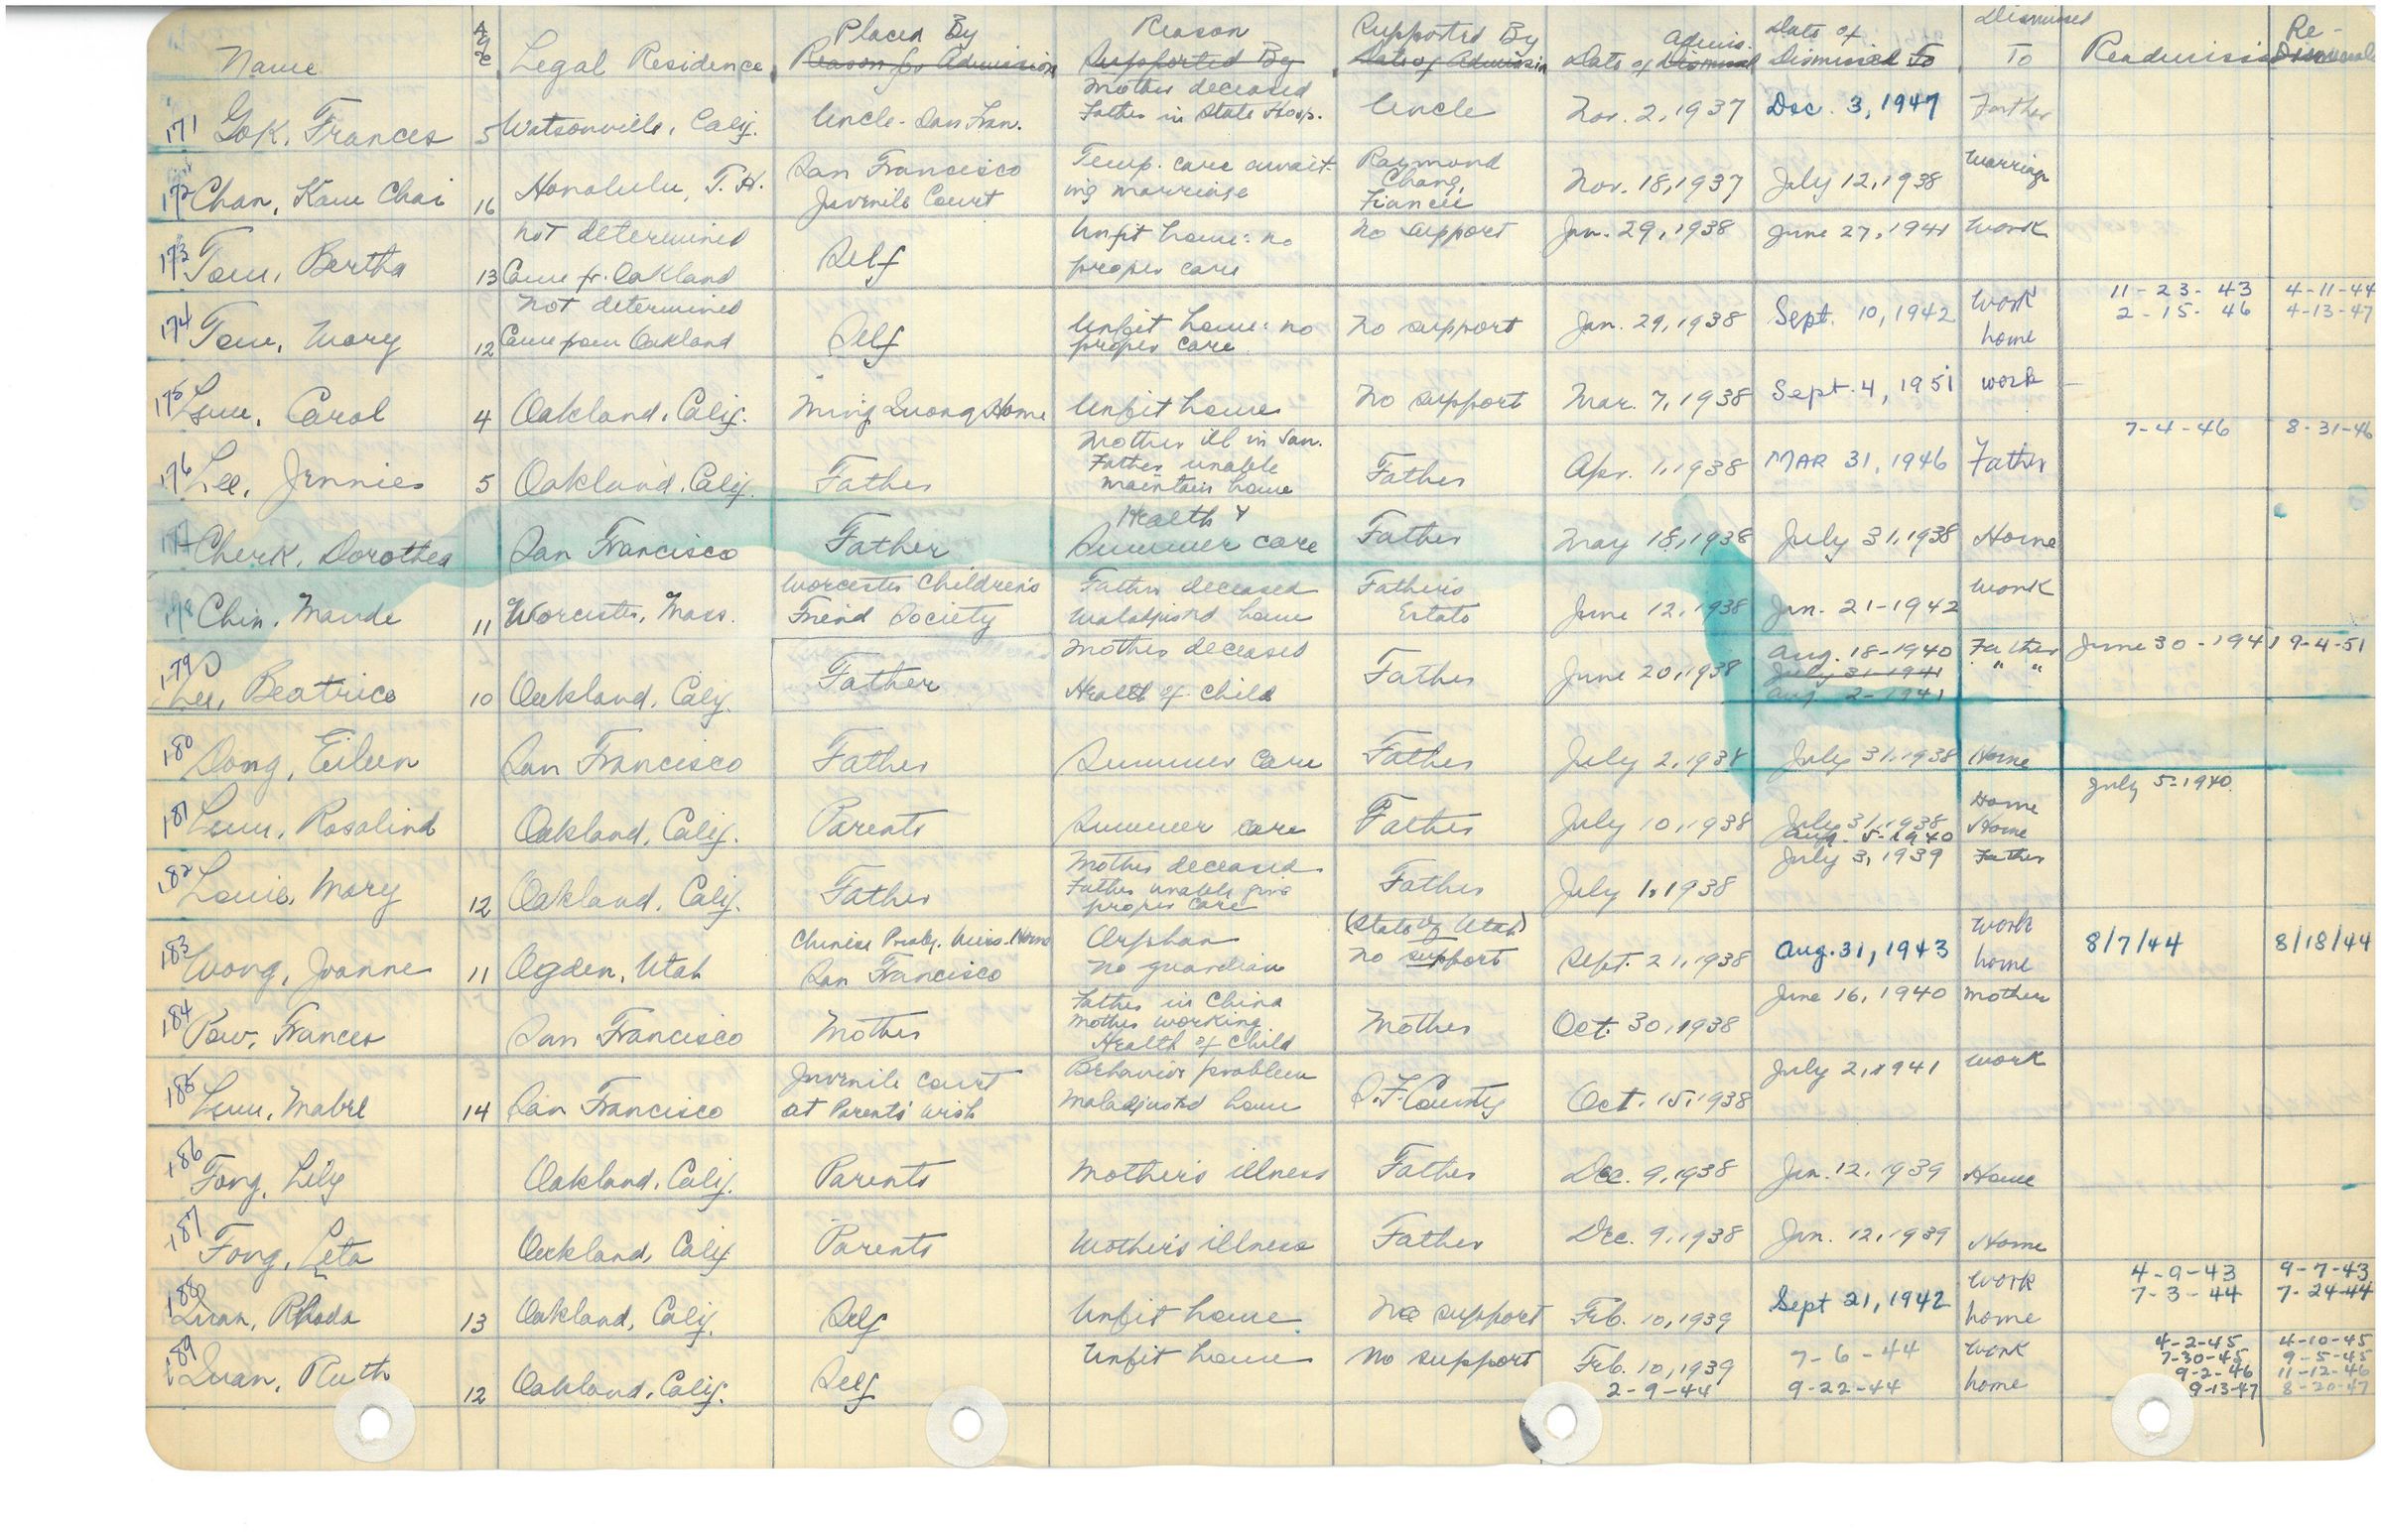 Name Age Legal Residence Placed By Reason for Admission Reason Supported By Supported By Date of Admission Date of Admis. Dismissal Date of Dismissed To Dismissed To Readmission Re-Dismissal
171 Gok, Frances 5 Watsonville, Calif. Uncle - San Fran. Mother deceased Father in State Hosp. Uncle Nov. 2, 1937 Dec. 3, 1947 Father
172 Chan, Kam Chai 16 Honolulu, T. H. San Francisco Juvenile Court Temp. care await-ing marriage Raymond Chang, Fiancee Nov. 18, 1937 July 12, 1938 marriage
173 Tom, Bertha 13 not determined Came fr. Oakland Self Unfit home: no proper care No support Jan. 29, 1938 June 27, 1941 Work
174 Tom, Mary 12 not determined Came from Oakland Self Unfit home: no proper care No support Jan. 29, 1938 Sept. 10, 1942 Work home 11-23-43 4-11-44
2-15-46 4-13-47
175 Lum, Carol 4 Oakland, Calif. Ming Quong Home Unfit home No support Mar. 7, 1938 Sept. 4, 1951 work
176 Lee, Jennie 5 Oakland, Calif. Father Mother ill in San. Father unable maintain home Father Apr. 1, 1938 MAR 31, 1946 Father 7-4-46 8-31-46
177 Cherk, Dorothea San Francisco Father Health & Summer care Father May 18, 1938 July 31, 1938 Home
178 Chin, Maude 11 Worcester, Mass. Worcester Children's Friend Society Father deceased Maladjusted home Father's Estate June 12, 1938 Jan. 21-1942 Work
179 Lee, Beatrice 10 Oakland, Calif. Father Mother deceased Health of Child Father June 20, 1938 Aug. 18-1940 Father June 30-1941 9-4-51
July 31-1941 " "
Aug 2-1941
180 Dong, Eileen San Francisco Father Summer Care Father July 2, 1938 July 31, 1938 Home
181 Lum, Rosalind Oakland, Calif. Parents Summer care Father July 10, 1938 July 31, 1938 Home July 5-1940
Aug. 5-1940 Home
182 Louie, Mary 12 Oakland, Calif. Father Mother deceased Father unable give proper care Father July 1, 1938 July 3, 1939 Father
183 Wong, Joanne 11 Ogden, Utah Chinese Presby. Miss. Home San Francisco Orphan no guardian (State of Utah) no support Sept. 21, 1938 Aug. 31, 1943 Work home 8/7/44 8/18/44
184 Pow, Frances San Francisco Mother Father in China Mother working Health of Child Mother Oct. 30, 1938 June 16, 1940 Mother
185 Lum, Mabel 14 San Francisco Juvenile Court at Parents' wish Behavior problem Maladjusted home S. F. County Oct. 15, 1938 July 2, 1941 Work
186 Fong, Lily Oakland, Calif. Parents Mother's illness Father Dec. 9, 1938 Jan. 12, 1939 Home
187 Fong, Leta Oakland, Calif Parents Mother's illness Father Dec. 9, 1938 Jan. 12, 1939 Home
188 Quan, Rhoda 13 Oakland, Calif. Self Unfit home No support Feb. 10, 1939 Sept 21, 1942 Work home 4-9-43 9-7-43
7-3-44 7-24-44
189 Quan, Ruth 12 Oakland, Calif. Self Unfit home No support Feb. 10, 1939 7-6-44 Work 4-2-45 4-10-45
7-30-45 9-5-45
2-9-44 9-22-44 home 9-2-46 11-12-46
9-13-47 8-20-47